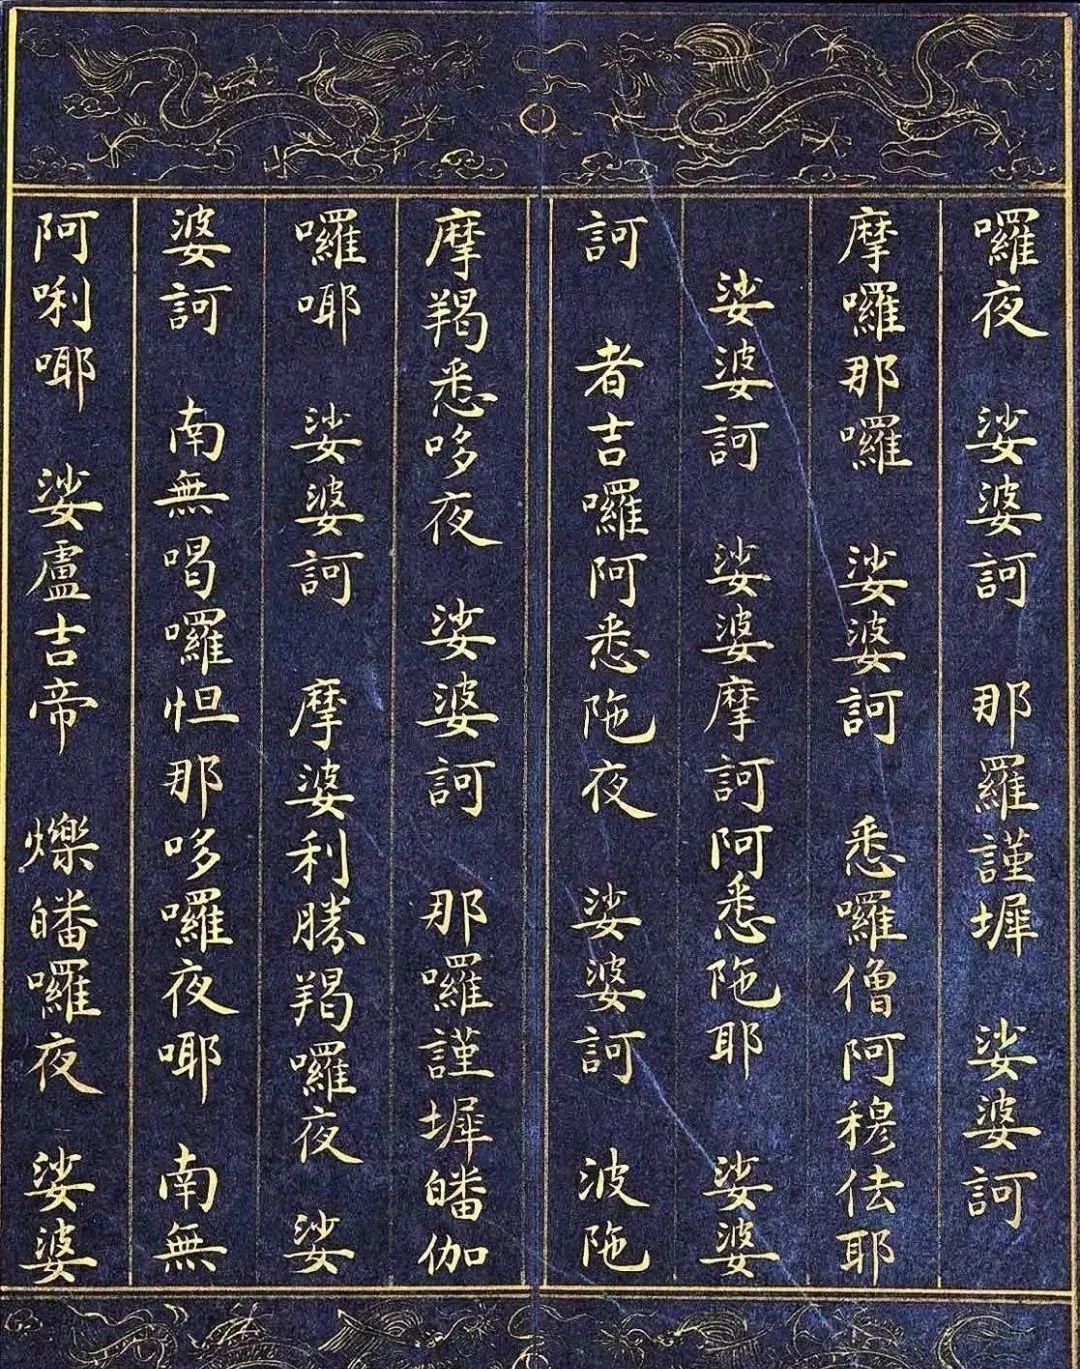 囉夜 娑婆訶 那羅謹墀 娑婆訶
摩囉那囉 娑婆訶 悉囉僧阿穆佉耶
娑婆訶 娑婆摩訶阿悉陁耶 娑婆
訶 者吉囉阿悉陁夜 娑婆訶 波陁
摩羯悉哆夜 娑婆訶 那囉謹墀皤伽
囉㖿 娑婆訶 摩婆利勝羯囉夜 娑
婆訶 南無喝囉怛那哆囉夜㖿 南無
阿唎㖿 娑盧吉帝 爍皤囉夜 娑婆